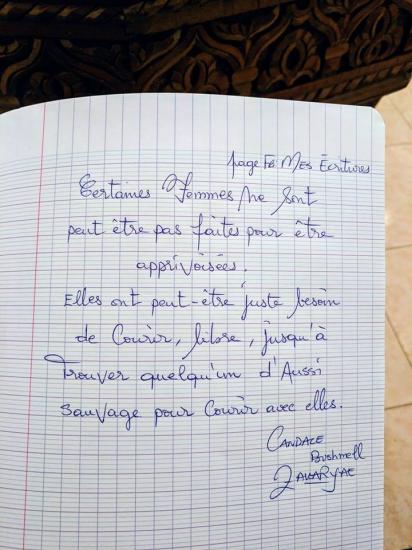 page FB Mes Écritures
Certaines Femmes ne sont
peut être pas faites pour être
apprivoisées.
Elles ont peut-être juste besoin
de Courir, libre, jusqu'à
Trouver quelqu'un d'Aussi
Sauvage pour Courir avec elles.
CANDACE
Bushnell